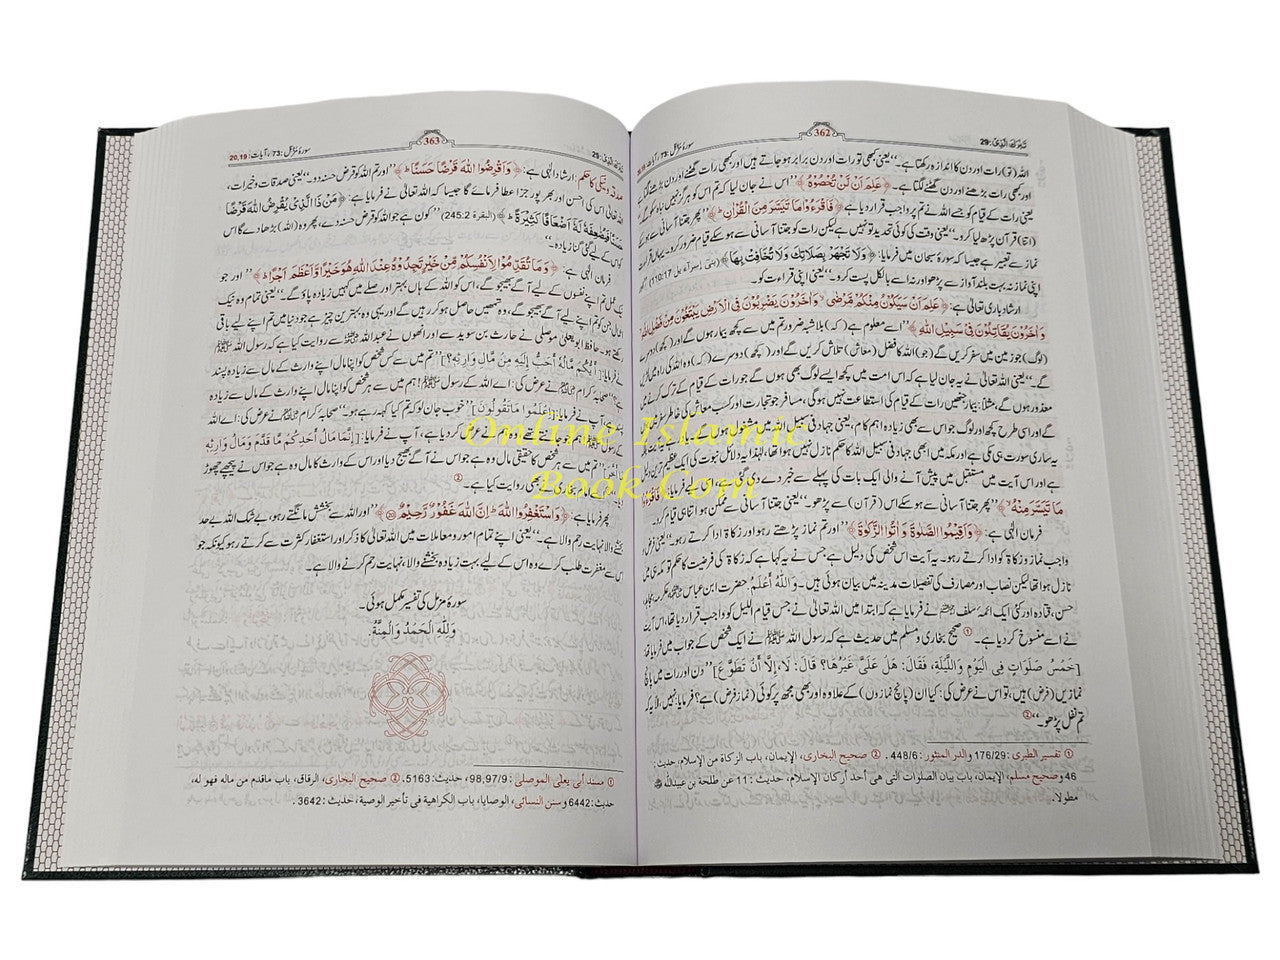 تَبٰرَكَ الَّذِیْ: 29
362
سورۂ مزمل: 73، آیات: 20,19
اللہ (تو) رات اور دن کا اندازہ رکھتا ہے۔“ یعنی کبھی تو رات اور دن برابر ہو جاتے ہیں اور کبھی رات گھٹنے
اور کبھی رات بڑھنے اور دن گھٹنے لگتا ہے۔ ﴿عَلِمَ اَنْ لَّنْ تُحْصُوْهُ﴾ ”اس نے جان لیا کہ تم اس کو ہرگز نہیں
یعنی رات کے قیام کو جسے اللہ نے تم پر واجب قرار دیا ہے ﴿فَاقْرَءُوْا مَا تَیَسَّرَ مِنَ الْقُرْاٰنِ ؕ﴾ ”پھر جتنا آسانی سے ہو سکے
(اتنا) قرآن پڑھ لیا کرو۔“ یعنی وقت کی کوئی تحدید تو نہیں ہے لیکن رات کو جتنا آسانی سے ہو سکے قیام ضرور کرو۔
نماز سے تعبیر ہے جیسا کہ سورۂ سبحان میں فرمایا: ﴿وَلَا تَجْهَرْ بِصَلَاتِكَ وَلَا تُخَافِتْ بِهَا﴾ (بنی إسرآءیل 110:17)
اپنی نماز نہ بہت بلند آواز سے پڑھو اور نہ بالکل پست کرو۔“ یعنی اپنی قراءت کو۔
ارشاد باری تعالیٰ ہے: ﴿عَلِمَ اَنْ سَیَكُوْنُ مِنْكُمْ مَّرْضٰی ۙ وَاٰخَرُوْنَ یَضْرِبُوْنَ فِی الْاَرْضِ یَبْتَغُوْنَ مِنْ فَضْلِ اللّٰهِ
وَاٰخَرُوْنَ یُقَاتِلُوْنَ فِیْ سَبِیْلِ اللّٰهِ﴾ ”اسے معلوم ہے (کہ) بلاشبہ ضرور تم میں سے کچھ بیمار ہوں گے اور کچھ اور دوسرے
(لوگ) جو زمین میں سفر کریں گے (جو) اللہ کا فضل (معاش) تلاش کریں گے اور (کچھ) دوسرے (کہ) وہ اللہ کی راہ میں لڑیں
گے۔“ یعنی اللہ تعالیٰ نے یہ جان لیا ہے کہ اس امت میں کچھ ایسے لوگ بھی ہوں گے جو رات کے قیام کے ترک کرنے میں
معذور ہوں گے، مثلاً: بیمار جنھیں رات کے قیام کی استطاعت نہیں ہوگی، مسافر جو تجارت اور کسب معاش کی خاطر
گے اور اسی طرح کچھ اور لوگ جو اس سے بھی زیادہ اہم کام، یعنی جہاد فی سبیل اللہ میں مشغول ہوں گے۔
یہ ساری سورت ہی مکی ہے اور مکہ میں ابھی جہاد فی سبیل اللہ کا حکم نازل نہیں ہوا تھا، لہٰذا یہ دلائل نبوت کی ایک عظیم ترین دلیل
ہے اور اس آیت میں مستقبل میں پیش آنے والی ایک بات کی پہلے سے خبر دے دی گئی ہے، اسی لیے فرمایا:
مَا تَیَسَّرَ مِنْهُ ۙ﴾ ”پھر جتنا آسانی سے ہو سکے اس (قرآن) سے پڑھو۔“ یعنی جتنا آسانی سے ممکن ہو اتنا ہی قیام کرو۔
فرمان الٰہی ہے: ﴿وَاَقِیْمُوا الصَّلٰوةَ وَاٰتُوا الزَّكٰوةَ﴾ ”اور تم نماز پڑھتے رہو اور زکاۃ ادا کرتے رہو۔“ یعنی فرض
واجب نماز و زکاۃ کو ادا کرتے رہو۔ یہ آیت اس شخص کی دلیل ہے جس نے یہ کہا ہے کہ زکاۃ کی فرضیت کا حکم تو مکہ ہی میں
نازل ہوا تھا لیکن نصاب اور مصارف کی تفصیلات مدینہ میں بیان ہوئی ہیں۔ وَاللّٰهُ أَعْلَمُ. حضرت ابن عباس، عکرمہ، مجاہد،
حسن، قتادہ اور کئی ایک ائمۂ سلف نے فرمایا ہے کہ ابتدا میں اللہ تعالیٰ نے جس قیام اللیل کو واجب قرار دیا تھا، اس آیت
نے اسے منسوخ کر دیا ہے۔① صحیح بخاری و مسلم میں حدیث ہے کہ رسول اللہ ﷺ نے ایک شخص کے جواب میں فرمایا تھا:
[خَمْسُ صَلَوَاتٍ فِی الْیَوْمِ وَاللَّیْلَةِ، فَقَالَ: هَلْ عَلَیَّ غَیْرُهَا؟ قَالَ: لَا، إِلَّا أَنْ تَطَوَّعَ] ”دن اور رات میں پانچ
نمازیں (فرض) ہیں، تو اس نے عرض کی: کیا ان (پانچ نمازوں) کے علاوہ اور بھی مجھ پر کوئی (نماز فرض) ہے؟ فرمایا: نہیں، الا یہ کہ
تم نفل پڑھو۔“②
① تفسیر الطبری: 176/29 والدر المنثور: 448/6. ② صحیح البخاری، الإیمان، باب الزکاة من الإسلام، حدیث:
46 وصحیح مسلم، الإیمان، باب بیان الصلوات التی هی أحد أرکان الإسلام، حدیث: 11 عن طلحة بن عبیدالله
مطولا.
تَبٰرَكَ الَّذِیْ: 29
363
سورۂ مزمل: 73، آیات: 20,19
صدقہ و نیکی کا حکم: ارشاد الٰہی ہے: ﴿وَاَقْرِضُوا اللّٰهَ قَرْضًا حَسَنًا ؕ﴾ ”اور تم اللہ کو قرض حسنہ دو۔“ یعنی صدقات و خیرات،
اللہ تعالیٰ اس کی احسن اور بھرپور جزا عطا فرمائے گا جیسا کہ اللہ تعالیٰ نے فرمایا ہے: ﴿مَنْ ذَا الَّذِیْ یُقْرِضُ اللّٰهَ قَرْضًا
حَسَنًا فَیُضٰعِفَهٗ لَهٗۤ اَضْعَافًا كَثِیْرَةً ؕ﴾ (البقرة 245:2) ”کون ہے جو اللہ کو قرض حسنہ دے، پھر وہ (اللہ) بڑھا دے گا اس
کو اس کے لیے کئی گنا زیادہ۔“
فرمان الٰہی ہے: ﴿وَمَا تُقَدِّمُوْا لِاَنْفُسِكُمْ مِّنْ خَیْرٍ تَجِدُوْهُ عِنْدَ اللّٰهِ هُوَ خَیْرًا وَّاَعْظَمَ اَجْرًا ؕ﴾ ”اور جو
نیک عمل تم اپنے نفسوں کے لیے آگے بھیجو گے، اس کو اللہ کے ہاں بہتر اور صلے میں کہیں زیادہ پاؤ گے۔“ یعنی تمام وہ نیک
اعمال جن کو تم اپنے لیے آگے بھیجو گے، وہ تمھیں حاصل ہو کر رہیں گے اور یہی وہ بہترین چیز ہے جو دنیا میں تم اپنے لیے باقی
رکھتے ہو۔ حافظ ابو یعلی موصلی نے حارث بن سوید سے اور انھوں نے عبداللہ سے روایت کیا ہے کہ رسول اللہ ﷺ
نے فرمایا: [أَیُّكُمْ مَّالُهُ أَحَبُّ إِلَیْهِ مِنْ مَّالِ وَارِثِهِ؟] ”تم میں سے کس شخص کو اپنا مال اپنے وارث کے مال سے زیادہ پسند
ہے؟“ صحابۂ کرام نے عرض کی: اے اللہ کے رسول ﷺ! ہم میں سے ہر شخص کو اپنا مال اپنے وارث کے مال سے زیادہ
آپ نے فرمایا: [اِعْلَمُوا مَا تَقُولُونَ] ”خوب جان لو کہ تم کیا کہہ رہے ہو۔“ صحابۂ کرام نے عرض کی: اے اللہ
کے رسول! ہم جو جانتے تھے وہ ہم نے عرض کر دیا ہے، آپ نے فرمایا: [إِنَّمَا مَالُ أَحَدِكُمْ مَّا قَدَّمَ وَمَالُ وَارِثِهِ
”تم میں سے ہر شخص کا حقیقی مال وہ ہے جو اس نے آگے بھیج دیا اور اس کے وارث کا مال وہ ہے جو اس نے پیچھے چھوڑ
امام بخاری نے بھی روایت کیا ہے۔②
پھر فرمایا ہے: ﴿وَاسْتَغْفِرُوا اللّٰهَ ؕ اِنَّ اللّٰهَ غَفُوْرٌ رَّحِیْمٌ﴾ ”اور اللہ سے بخشش مانگتے رہو، بے شک اللہ بے حد
بخشنے والا نہایت رحم والا ہے۔“ یعنی اپنے تمام امور و معاملات میں اللہ تعالیٰ کا ذکر اور استغفار کثرت سے کرتے رہو کیونکہ جو
اس سے مغفرت طلب کرے وہ اس کے لیے بہت زیادہ بخشنے والا، نہایت رحم کرنے والا ہے۔
سورۂ مزمل کی تفسیر مکمل ہوئی۔
وَلِلّٰهِ الْحَمْدُ وَالْمِنَّةُ.
① مسند أبی یعلی الموصلی: 98,97/9، حدیث: 5163. ② صحیح البخاری، الرقاق، باب ماقدم من ماله فهو له،
حدیث: 6442 و سنن النسائی، الوصایا، باب الکراهیة فی تأخیر الوصیة، حدیث: 3642.
Online Islamic
Book.Com